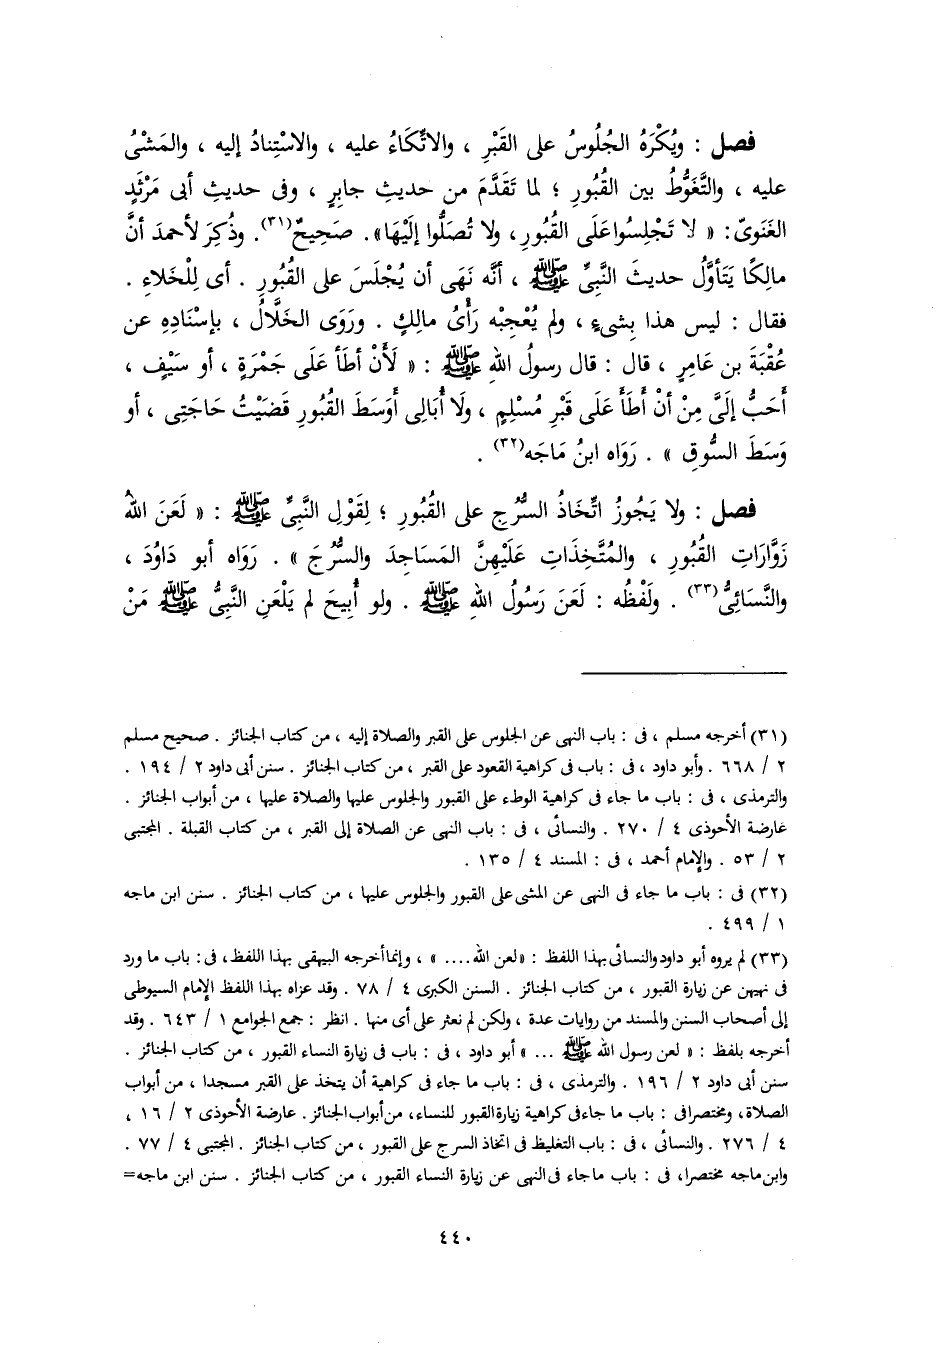 فصل : ويُكْرَهُ الجُلُوسُ على القَبْرِ ، والاتِّكَاءُ عليه ، والاسْتِنادُ إليه ، والمَشْىُ
عليه ، والتَّغَوُّطُ بين القُبُورِ ؛ لما تَقَدَّمَ من حديثِ جابِرٍ ، وفى حديثِ أبى مَرْثَدٍ
الغَنَوىّ: « لا تَجْلِسُوا عَلَى القُبُورِ، ولا تُصَلُّوا إلَيْهَا». صَحِيحٌ(٣١). وذُكِرَ لأحمدَ أنَّ
مالِكًا يَتَأوَّلُ حديثَ النَّبِىِّ ﷺ ، أنَّه نَهَى أن يُجْلَسَ على القُبُورِ . أى لِلْخَلاءِ .
فقال : ليس هذا بِشىءٍ ، ولم يُعْجِبْه رَأْىُ مالِكٍ . ورَوَى الخَلَّالُ ، بإسْنَادِهِ عن
عُقْبَةَ بن عَامِرٍ ، قال : قال رسولُ اللهِ ﷺ : « لَأَنْ أطَأَ عَلَى جَمْرَةٍ ، أو سَيْفٍ ،
أَحَبُّ إلَىَّ مِنْ أنْ أطَأَ عَلَى قَبْرِ مُسْلِمٍ ، ولَا أُبَالِى أَوَسَطَ القُبُورِ قَضَيْتُ حَاجَتِى ، أو
وَسَطَ السُّوقِ » . رَوَاه ابنُ مَاجَه(٣٢) .
فصل : ولا يَجُوزُ اتِّخَاذُ السُّرُجِ على القُبُورِ ؛ لِقَوْلِ النَّبِىِّ ﷺ : « لَعَنَ اللهُ
زَوَّارَاتِ القُبُورِ ، والمُتَّخِذَاتِ عَلَيْهِنَّ المَسَاجِدَ والسُّرُجَ » . رَوَاه أبو دَاوُدَ ،
والنَّسَائِىُّ(٣٣) . ولَفْظُه : لَعَنَ رَسُولُ اللهِ ﷺ . ولو أُبِيحَ لم يَلْعَنِ النَّبِىُّ ﷺ مَنْ
(٣١) أخرجه مسلم ، فى : باب النهى عن الجلوس على القبر والصلاة إليه ، من كتاب الجنائز . صحيح مسلم
٢ / ٦٦٨ . وأبو داود ، فى : باب فى كراهية القعود على القبر ، من كتاب الجنائز . سنن أبى داود ٢ / ١٩٤ .
والترمذى ، فى : باب ما جاء فى كراهية الوطء على القبور والجلوس عليها والصلاة عليها ، من أبواب الجنائز .
عارضة الأحوذى ٤ / ٢٧٠ . والنسائى ، فى : باب النهى عن الصلاة إلى القبر ، من كتاب القبلة . المجتبى
٢ / ٥٣ . والإمام أحمد ، فى : المسند ٤ / ١٣٥ .
(٣٢) فى : باب ما جاء فى النهى عن المشى على القبور والجلوس عليها ، من كتاب الجنائز . سنن ابن ماجه
١ / ٤٩٩ .
(٣٣) لم يروه أبو داود والنسائى بهذا اللفظ : «لعن الله .... » ، وإنما أخرجه البيهقى بهذا اللفظ، فى: باب ما ورد
فى نهيهن عن زيارة القبور ، من كتاب الجنائز . السنن الكبرى ٤ / ٧٨ . وقد عزاه بهذا اللفظ الإمام السيوطى
إلى أصحاب السنن والمسند من روايات عدة ، ولكن لم نعثر على أى منها . انظر : جمع الجوامع ١ / ٦٤٣ . وقد
أخرجه بلفظ : « لعن رسول الله ﷺ ... » أبو داود ، فى : باب فى زيارة النساء القبور ، من كتاب الجنائز .
سنن أبى داود ٢ / ١٩٦ . والترمذى ، فى : باب ما جاء فى كراهية أن يتخذ على القبر مسجدا ، من أبواب
الصلاة، ومختصرا فى : باب ما جاء فى كراهية زيارة القبور للنساء، من أبواب الجنائز. عارضة الأحوذى ٢ / ١٦ ،
٤ / ٢٧٦ . والنسائى ، فى : باب التغليظ فى اتخاذ السرج على القبور ، من كتاب الجنائز . المجتبى ٤ / ٧٧ .
وابن ماجه مختصرا، فى : باب ما جاء فى النهى عن زيارة النساء القبور ، من كتاب الجنائز . سنن ابن ماجه=
٤٤٠